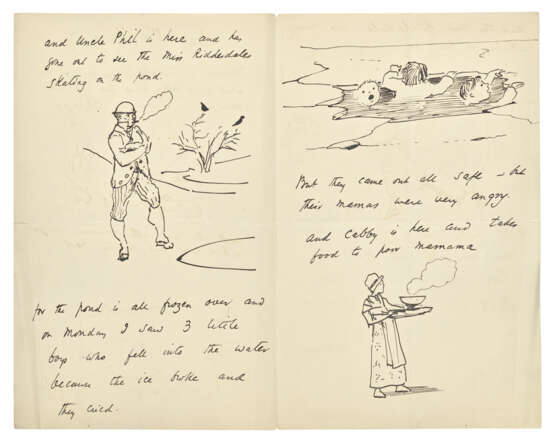 and Uncle Phil is here and has
gone out to see the Miss Riddesdales
skating on the pond.
for the pond is all frozen over and
on Monday I saw 3 little
boys who fell into the water
because the ice broke and
they cried.
But they came out all safe – but
their mamas were very angry
and Cabby is here and takes
food to poor Mamama